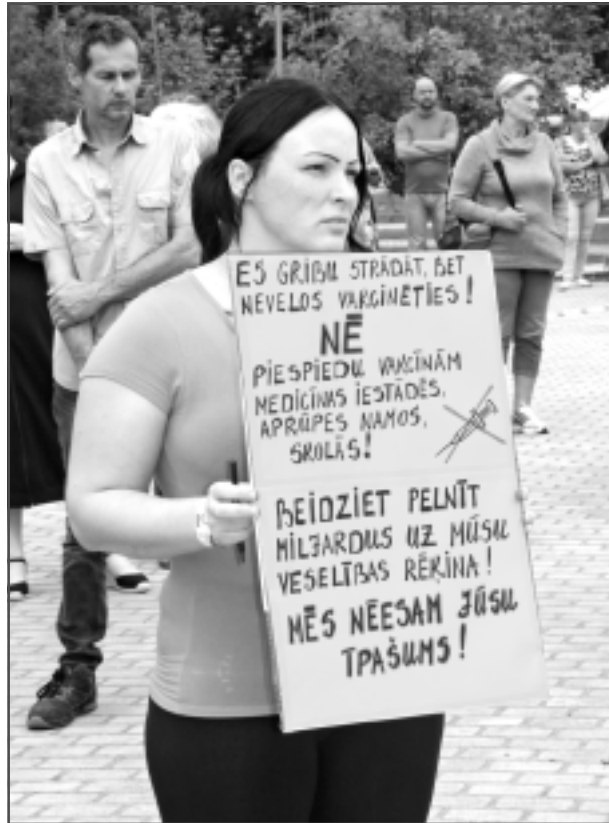 ES GRIBU STRĀDĀT, BET
NEVĒLOS VAKCINĒTIES!
NĒ
PIESPIEDU VAKCĪNĀM
MEDICĪNAS IESTĀDĒS,
APRŪPES NAMOS,
SKOLĀS!
BEIDZIET PELNĪT
MILJARDUS UZ MŪSU
VESELĪBAS RĒĶINA!
MĒS NĒESAM JŪSU
ĪPAŠUMS!